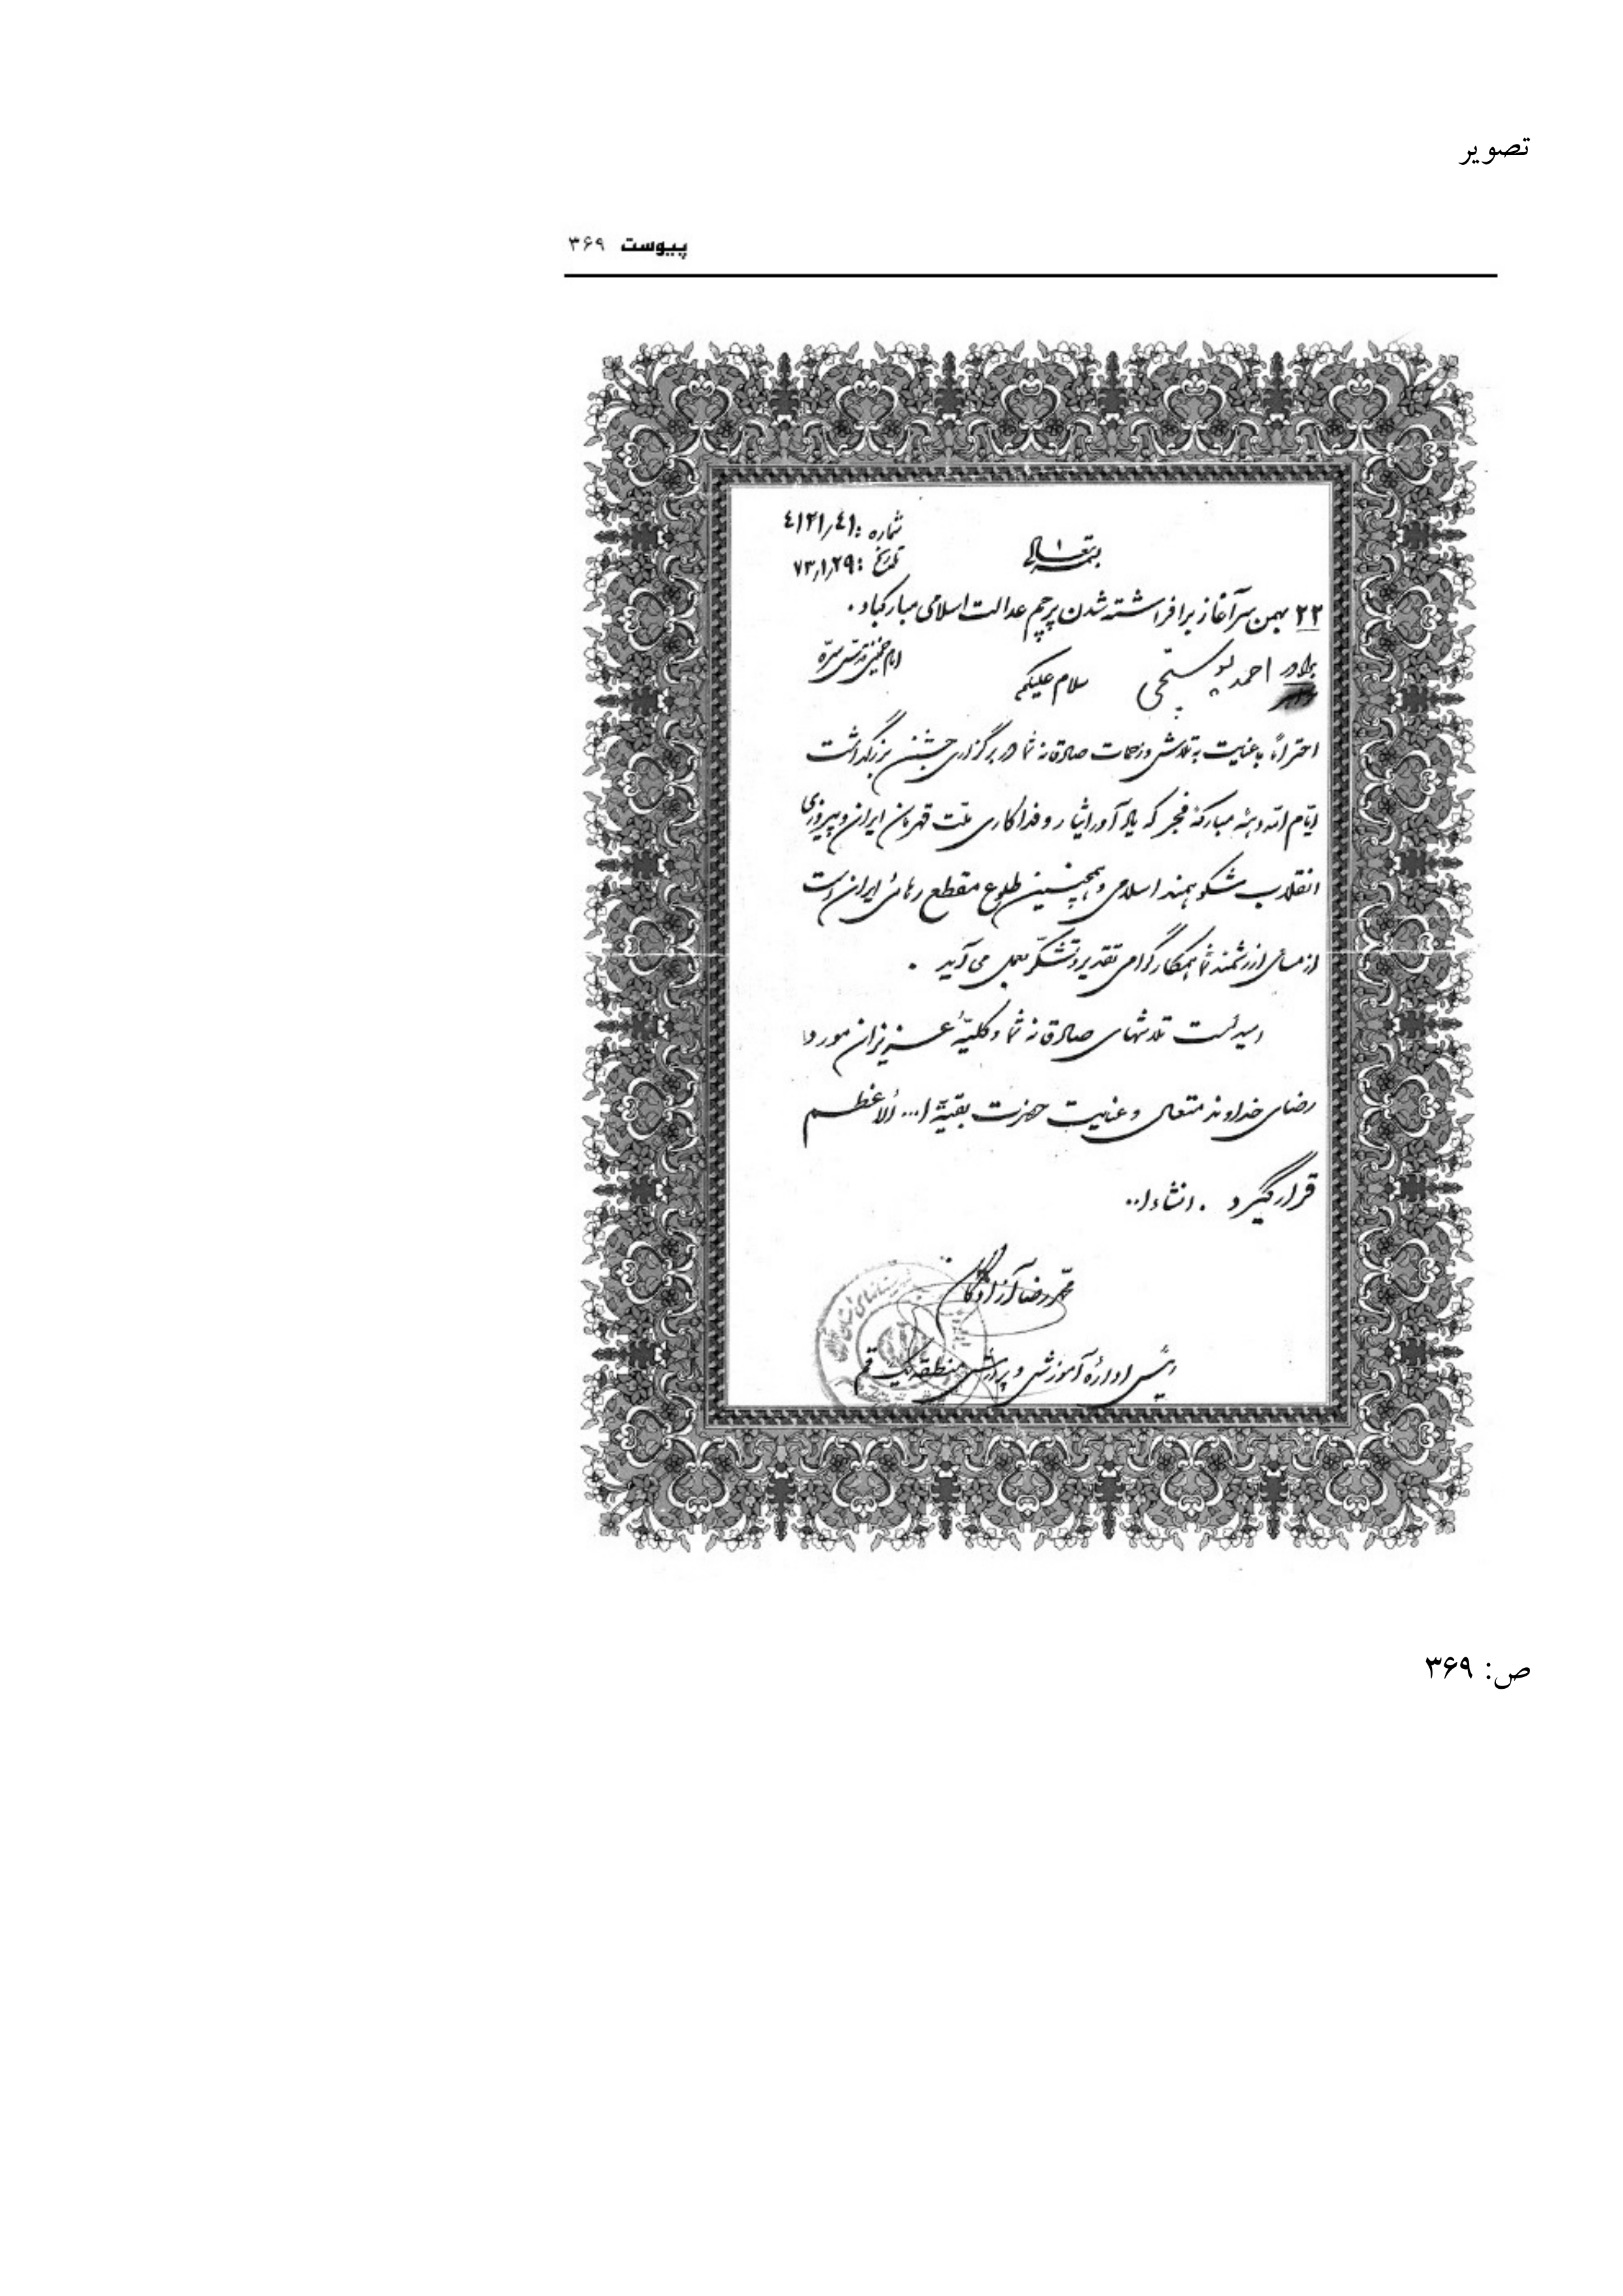 تصویر
پیوست ۳۶۹
شماره : ٤١٢١/٤١
تاریخ : ۷۳/۱/۲۹
بسمه تعالی
۲۲ بهمن سرآغاز برافراشته شدن پرچم عدالت اسلامی مبارکباد .
امام خمینی قدس سره
برادر احمد سلام علیکم
احتراماً با عنایت به تلاش و زحمات صادقانه شما در برگزاری جشن بزرگداشت
ایّام الله دهه مبارکهٔ فجر که یاد آور ایثار و فداکاری ملّت قهرمان ایران و پیروزی
انقلاب شکوهمند اسلامی و همچنین طلوع مقطع رهائی ایران است
از مساعی ارزشمند شما همکار گرامی تقدیر و تشکّر بعمل می آید .
امید است تلاشهای صادقانه شما و کلیّهٔ عزیزان مورد
رضای خداوند متعال و عنایت حضرت بقیّة ا... الأعظم
قرار گیرد . انشاءا..
محمّدرضا آزادگان
رئیس ادارهٔ آموزش و پرورش منطقه یک قم
ص: ۳۶۹